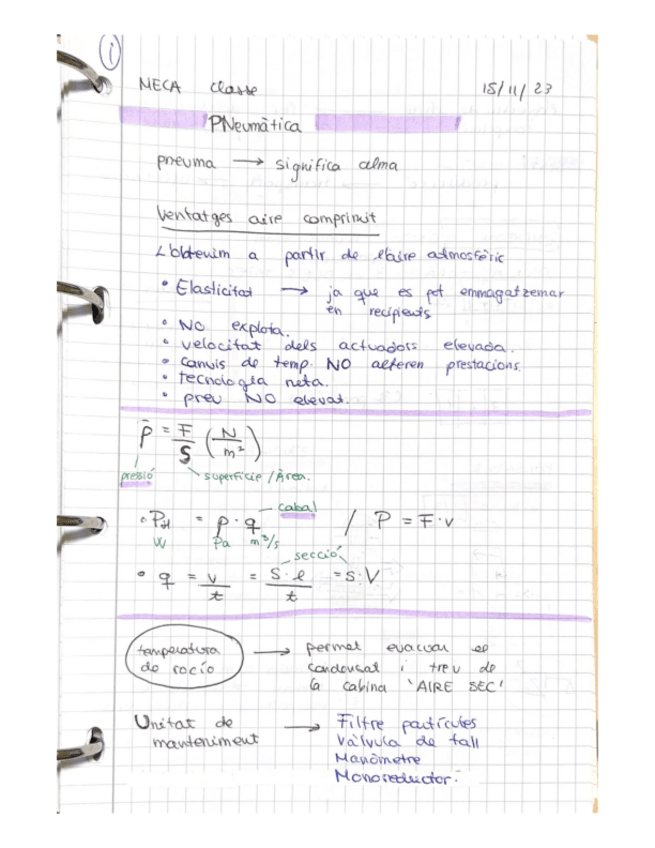 i
MECA classe 15/11/23
PNeumàtica
pneuma → significa alma
Ventatges aire comprimit
L'obtenim a partir de l'aire atmosfèric
• Elasticitat → ja que es pot emmagatzemar
en recipients
• NO explota.
• velocitat dels actuadors elevada.
• canvis de temp. NO alteren prestacions.
• tecnologia neta.
• preu NO elevat.
p = F/S (N/m²)
pressió superfície / Àrea.
• PH = p · q cabal / P = F · v
W Pa m³/s
secció
• q = v/t = S·l/t = S·V
temperatura de rocío → permet evacuar el
condensat i treu de
la cabina 'AIRE SEC'
Unitat de manteniment → Filtre partícules
Vàlvula de tall
Manòmetre
Monoreductor.